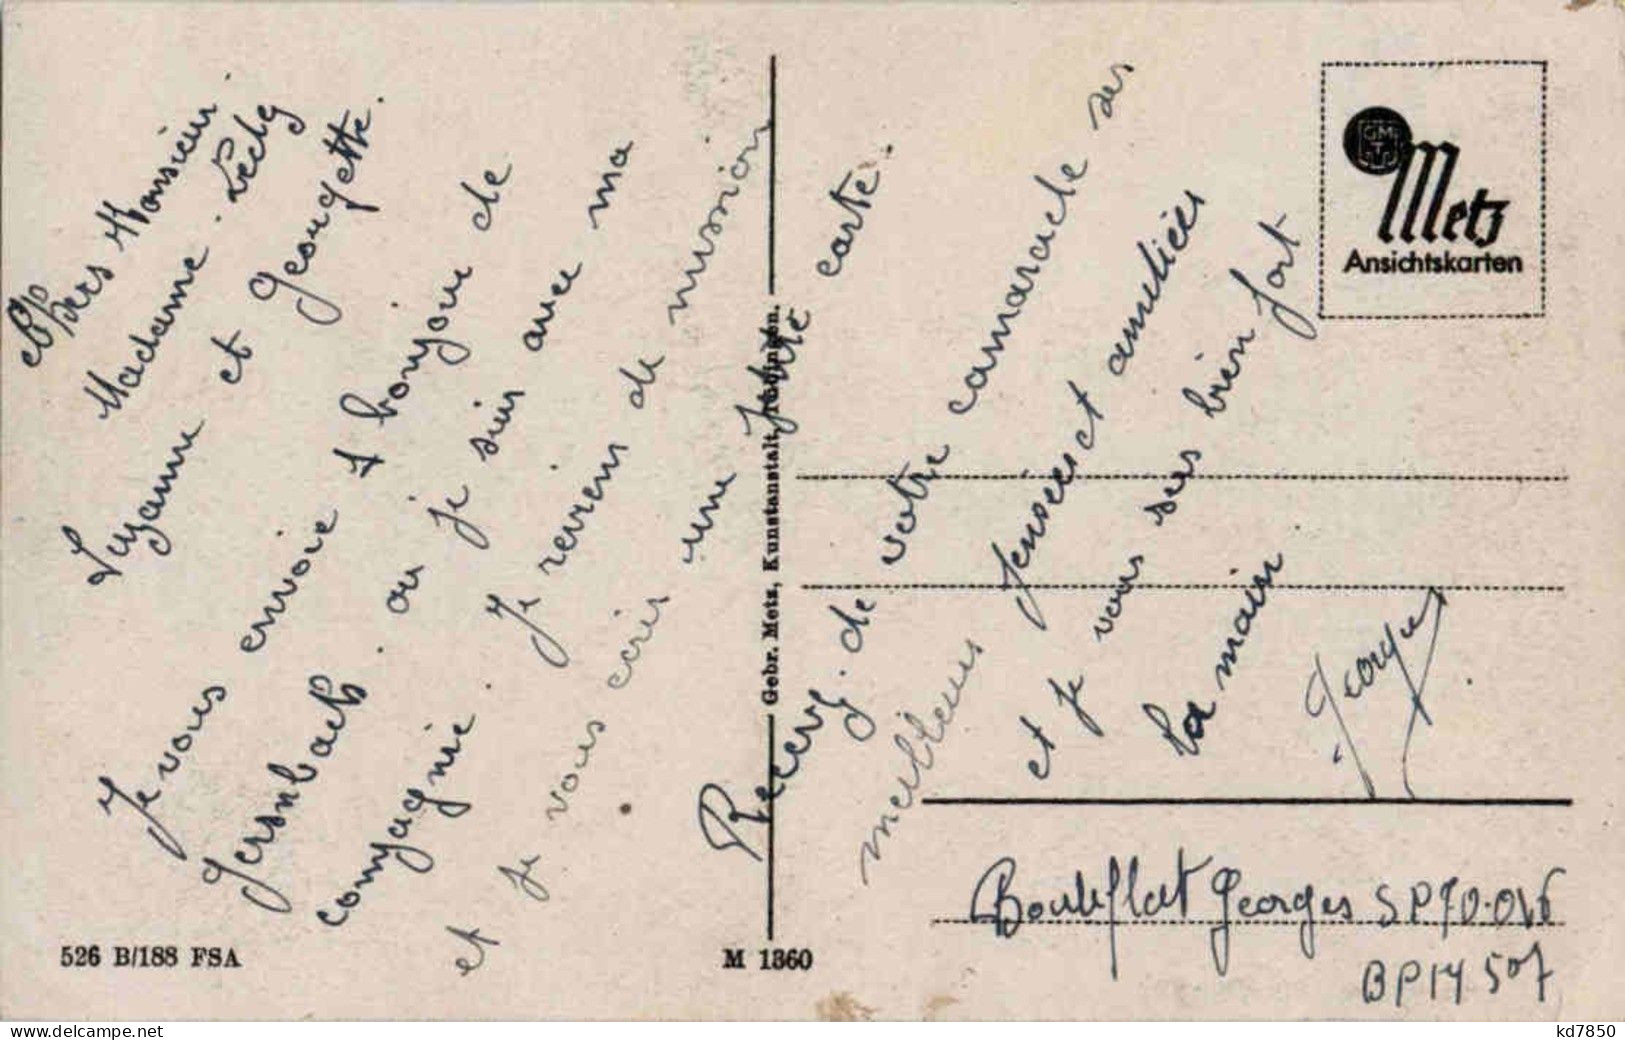 Chers Monsieur
Madame
Suzanne et Georgette.
Je vous envoie 1 bonjour de
Gersnbach. ou je suis avec ma
compagnie. Je reviens de mission
et je vous ecris une ptite carte.
Recevez. de votre camarade ses
meilleurs pensées et amitiées
et je vous sers bien fort
la main
Georges
Bouleflat Georges SP 70-016
BP 14 507
Metz
Ansichtskarten
Gebr. Metz, Kunstanstalt, Tübingen.
526 B/188 FSA
M 1360
kd7850